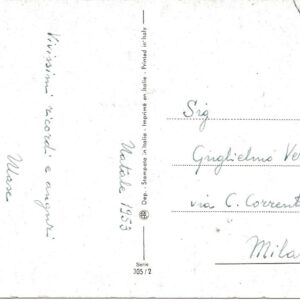 Vivissimi ricordi e auguri
Natale 1953
Dep. - Stampato in Italia - Imprimé en Italie - Printed in Italy
Serie
305/2
Sig
Guglielmo Ve
via C. Corrent
Milan